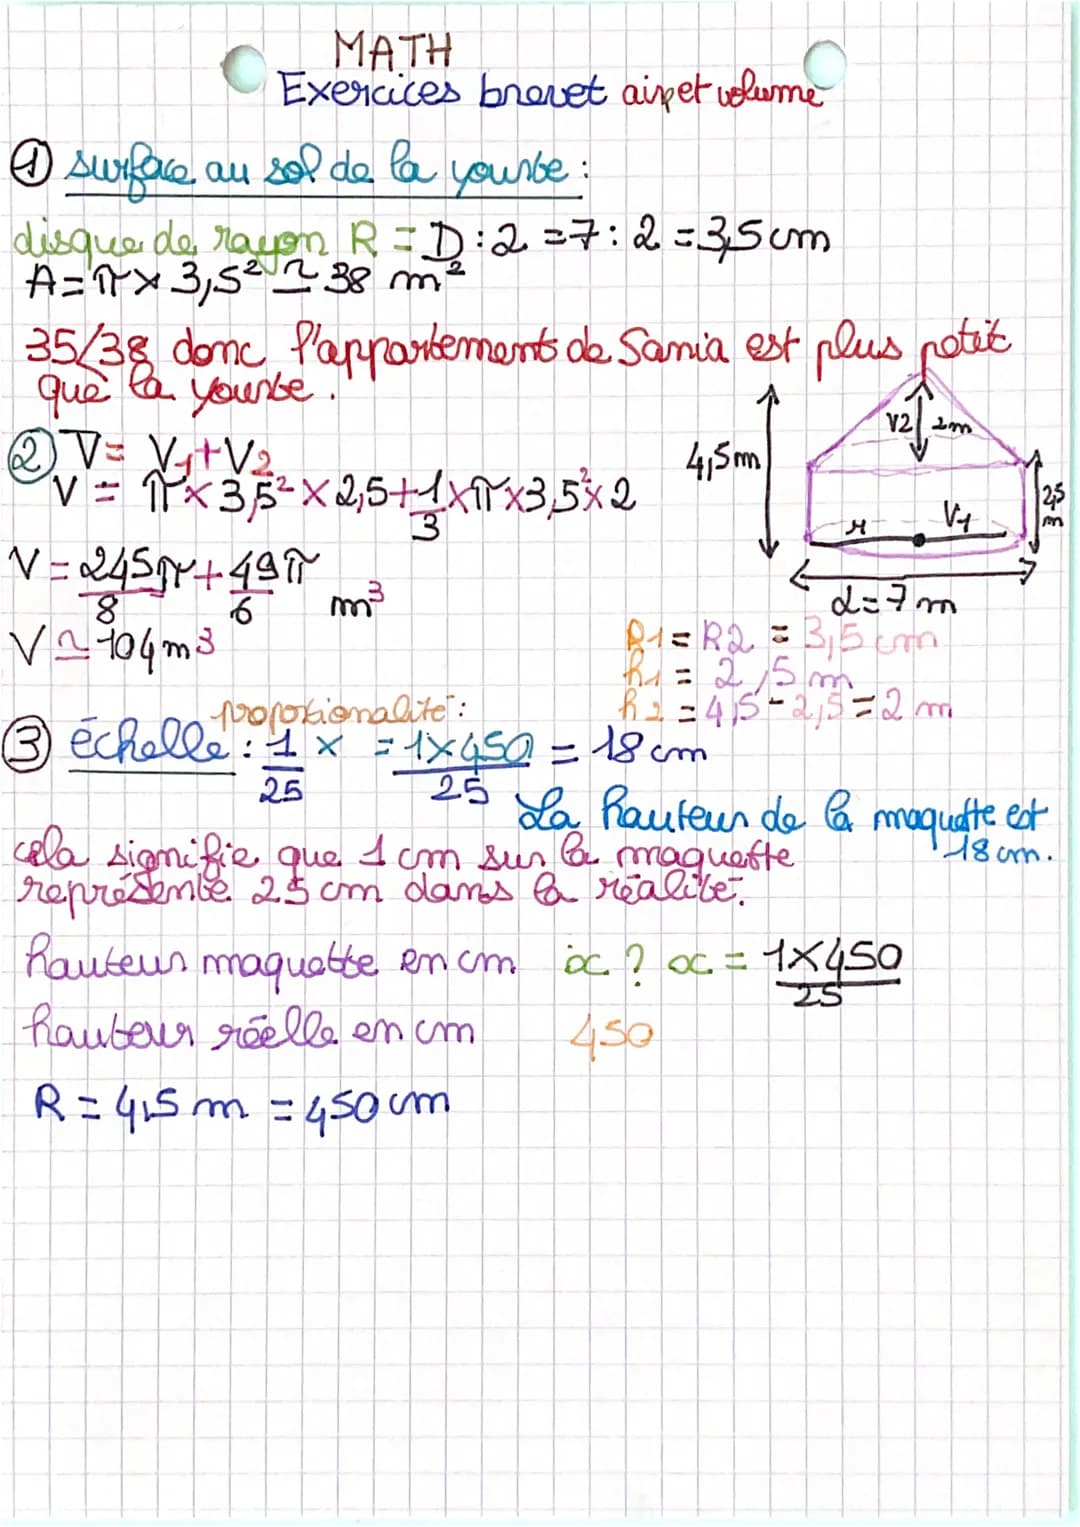 MATH
Exercices brevet aire et volume
① surface au sol de la yourte :
disque de rayon R = D : 2 = 7 : 2 = 3,5 cm
A = π × 3,5² ≃ 38 m²
35/38 donc l'appartements de Samia est plus petit
que la yourte.
② V = V1 + V2
V = π × 3,5² × 2,5 + 1/3 × π × 3,5² × 2
V = 245π/8 + 49π/6 m³
V ≃ 104 m³
4,5m
V2 2m
r V1
2,5 m
d = 7 m
R1 = R2 = 3,5 cm
h1 = 2,5 m
h2 = 4,5 - 2,5 = 2 m
proportionalité :
③ échelle : 1/25 × = 1×450/25 = 18 cm
La hauteur de la maquette est
18 cm.
cela signifie que 1 cm sur la maquette
représente 25 cm dans la réalité.
hauteur maquette en cm x ? x = 1×450/25
hauteur réelle en cm 450
R = 4,5 m = 450 cm